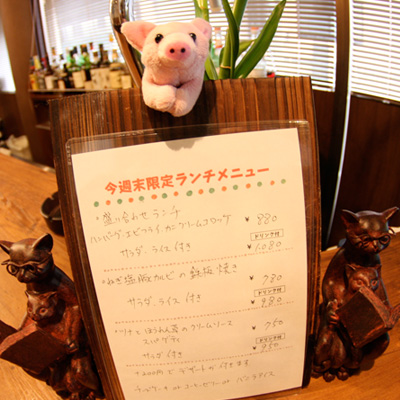 今週末限定ランチメニュー
・盛り合わせランチ ¥880
ハンバーグ エビフライ カニクリームコロッケ ドリンク付
サラダ、ライス付き ¥1,080
・ねぎ塩豚カルビの鉄板焼き
¥780
ドリンク付
サラダ、ライス付き ¥980
・ツナとほうれん草のクリームソース ¥750
スパゲティ ドリンク付
サラダ付き ¥950
+200円でデザートが付きます